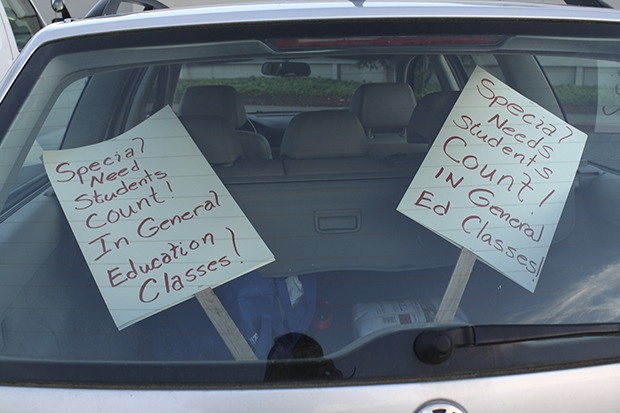 Special
Need
Students
Count!
In General
Education
Classes!
Special
Needs
Students
Count!
IN General
Ed Classes!